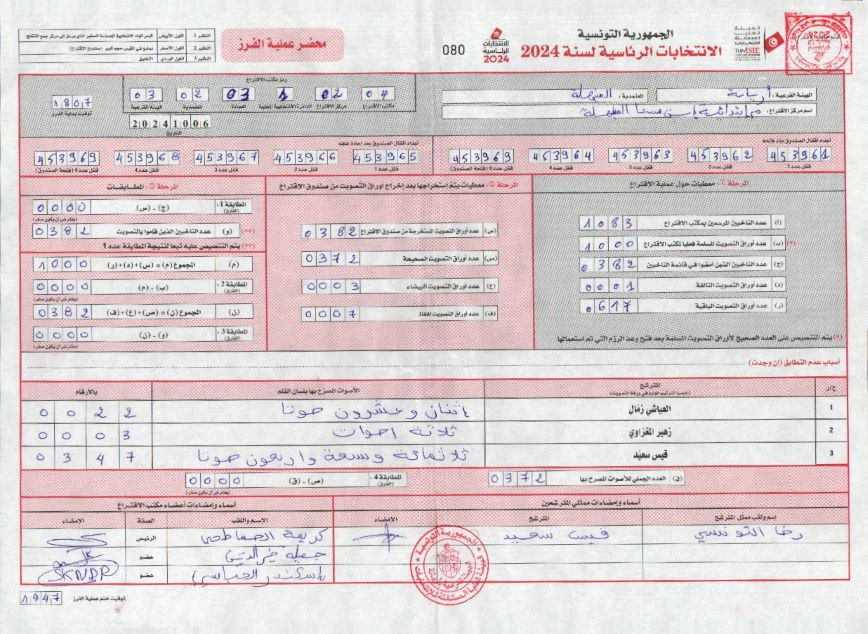 الجمهورية التونسية
الانتخابات الرئاسية لسنة 2024
080
الانتخابات الرئاسية 2024
محضر عملية الفرز
النظير 1
النظير 2
النظير 3
الهيئة الفرعية: أريانة
المعتمدية: المنيهلة
اسم مركز الاقتراع:
رمز مكتب الاقتراع
04 02 1 03 02 03
مكتب الاقتراع
مركز الاقتراع
الدائرة الانتخابية المحلية
العمادة
المعتمدية
الهيئة الفرعية
1807
توقيت بداية الفرز
20241006
التاريخ
أعداد أقفال الصندوق عند فتحه
453961 453962 453963 453964 453969
أعداد أقفال الصندوق بعد إعادة غلقه
453965 453966 453967 453968 453969
المرحلة 1: معطيات حول عملية الاقتراع
(أ) عدد الناخبين المرسمين بمكتب الاقتراع 1083
(ب) عدد أوراق التصويت المسلمة فعليا لمكتب الاقتراع 1000
(ج) عدد الناخبين الذين أمضوا في قائمة الناخبين 0382
(د) عدد أوراق التصويت التالفة 0001
(ر) عدد أوراق التصويت الباقية 0617
(*) يتم التنصيص على العدد الصحيح لأوراق التصويت المسلمة بعد فتح وعد الرزم التي تم استعمالها
معطيات يتم استخراجها بعد إخراج أوراق التصويت من صندوق الاقتراع
(س) عدد أوراق التصويت المستخرجة من صندوق الاقتراع 0382
(ص) عدد أوراق التصويت الصحيحة 0372
(ع) عدد أوراق التصويت البيضاء 0003
(ف) عدد أوراق التصويت الملغاة 0007
المطابقات
المطابقة 1: (الفارق) (ج) - (س) 0000
(و) عدد الناخبين الذين قاموا بالتصويت 0382
(**) يتم التنصيص عليه تبعا لنتيجة المطابقة عدد 1
(م) المجموع (م) = (س) + (د) + (ر) 1000
المطابقة 2: (الفارق) (ب) - (م) 0000
(ن) المجموع (ن) = (ص) + (ع) + (ف) 0382
المطابقة 3: (الفارق) (و) - (ن) 0000
أسباب عدم التطابق (إن وجدت)
ع/ر
المترشح
الأصوات المصرح بها بلسان القلم
بالأرقام
1 العياشي زمال إثنان وعشرون صوتا 0022
2 زهير المغزاوي ثلاثة أصوات 0003
3 قيس سعيد ثلاثمائة وسبعة وأربعون صوتا 0347
(ق) العدد الجملي للأصوات المصرح بها 0372
المطابقة 4: (الفارق) (ص) - (ق) 0000
أسماء وإمضاءات ممثلي المترشحين
أسماء وإمضاءات أعضاء مكتب الاقتراع
اسم ولقب ممثل المترشح
المترشح
الإمضاء
الاسم واللقب
الصفة
الإمضاء
رضا التونسي قيس سعيد
الرئيس
عضو
عضو
توقيت ختم عملية الفرز
1947